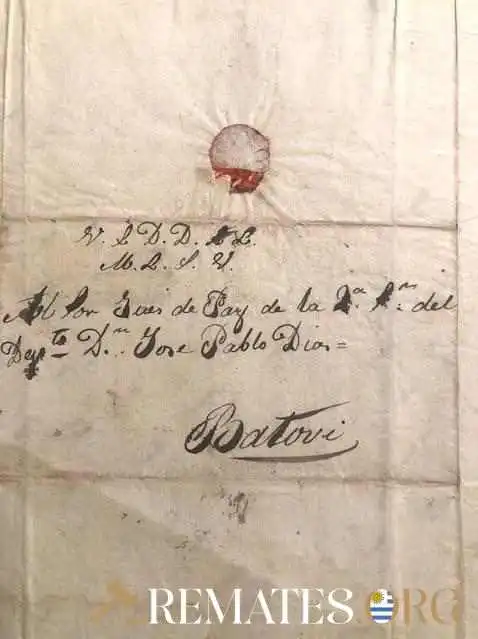 V. L D. D. L L.
M. L. S. V.
Al Sor Jues de Paz de la 2.ª S.ⁿ del
Depto D.ⁿ Jose Pablo Dias =
Batovi
REMATES.ORG